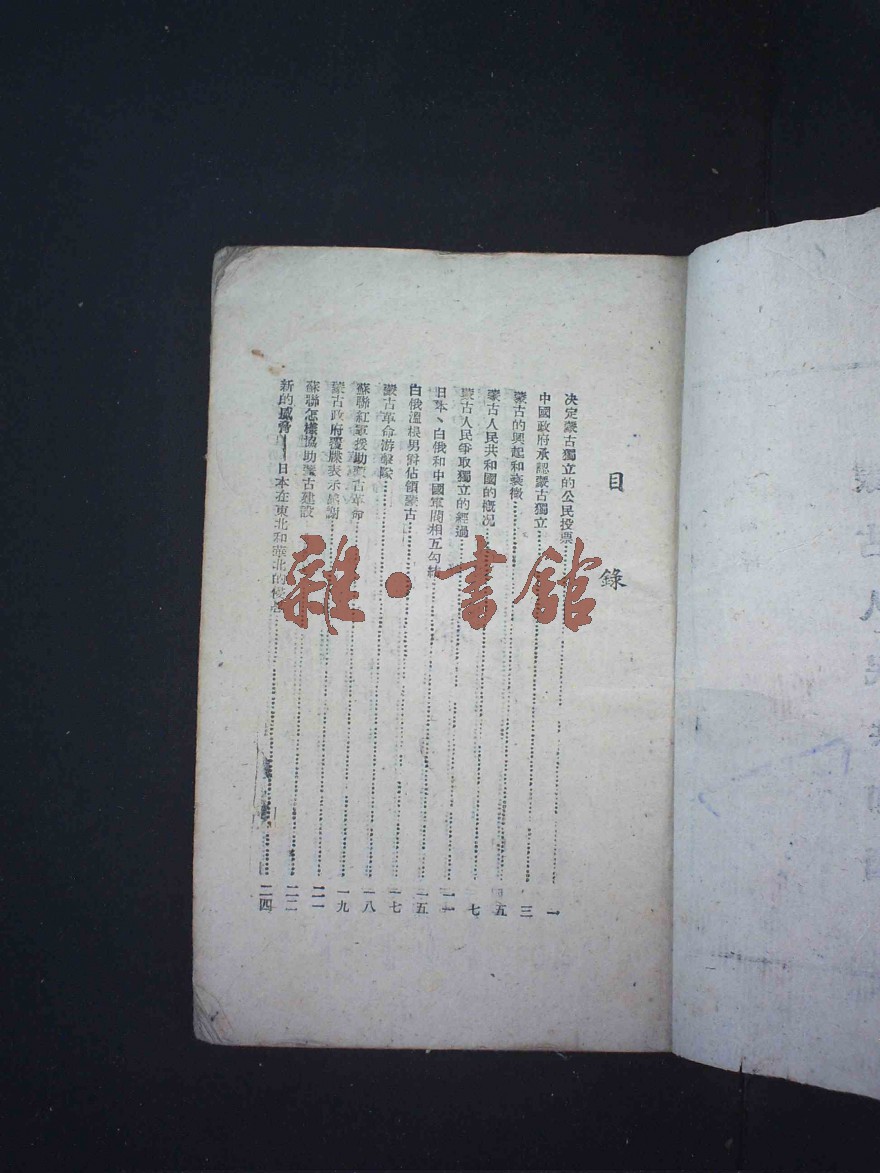 目錄
决定蒙古獨立的公民投票 一
中國政府承認蒙古獨立 三
蒙古的興起和衰微 五
蒙古人民共和國的槪况 七
蒙古人民爭取獨立的經過
日本、白俄和中國軍閥相互勾結 一五
白俄溫根男爵佔領蒙古 一七
蒙古革命游擊隊 一八
蘇聯紅軍援助蒙古革命 一九
蒙古政府覆牒表示感謝 二一
蘇聯怎樣協助蒙古建設 二二
新的威脅——日本在東北和華北的侵 二四
雜·書館